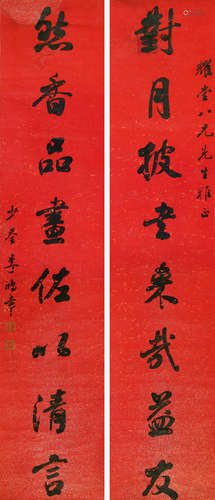 耀堂八兄先生雅正
對月披書樂哉益友
然香品畫佐以清言
少荃李鴻章